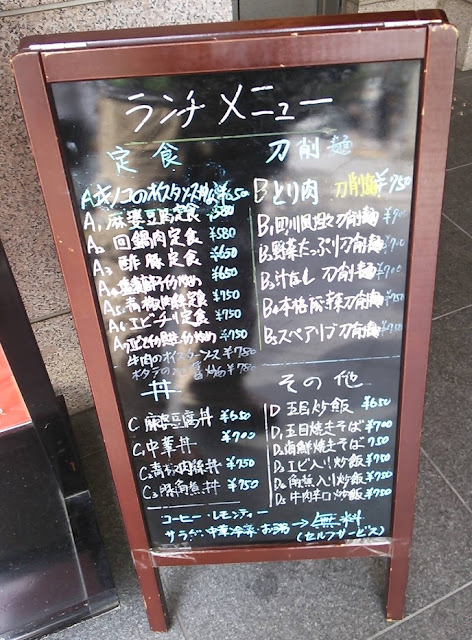 ランチメニュー
定食
A キノコのオイスターソース炒め ¥650
A₁ 麻婆豆腐定食 ¥580
A₂ 回鍋肉定食 ¥580
A₃ 酢豚定食 ¥650
¥650
A₅ 青椒肉絲定食 ¥750
A₆ エビチリ定食 ¥750
A₇ ¥750
牛肉のオイスターソース ¥780
ホタテの ¥780
刀削麺
B とり肉 刀削麺 ¥750
B₁ 四川風 刀削麺 ¥700
B₂ 野菜たっぷり刀削麺 ¥700
B₃ 汁なし刀削麺 ¥700
B₄ 本格麻辣刀削麺
B₅ スペアリブ刀削麺 ¥750
丼
C 麻婆豆腐丼 ¥650
C₁ 中華丼 ¥700
C₂ 青椒肉絲丼 ¥750
C₃ 豚角煮丼 ¥750
その他
D 五目炒飯 ¥650
D₁ 五目焼きそば ¥700
D₂ 海鮮焼きそば 750
D₃ エビ入り炒飯 ¥750
D₄ 角煮入り炒飯 ¥750
D₅ 牛肉辛口炒飯 ¥750
コーヒー・レモンティー
サラダ・中華冷菜・お粥 → 無料
(セルフサービス)